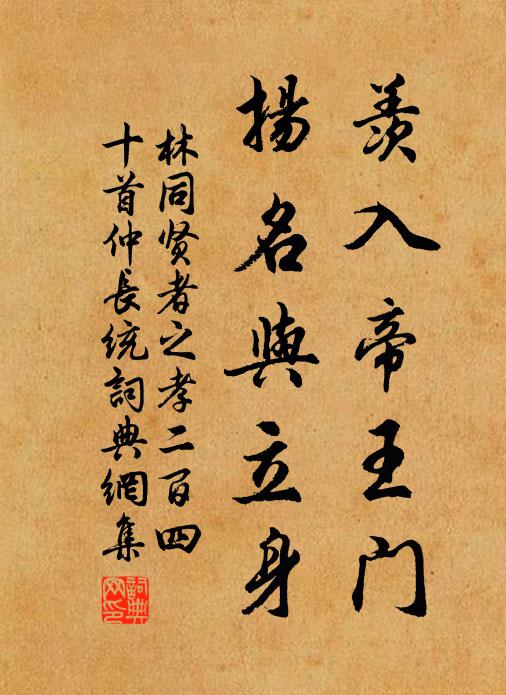 羡入帝王门
揚名與立身
林同贤者之孝二百四
十首仲長统詞典網集
詞典网印